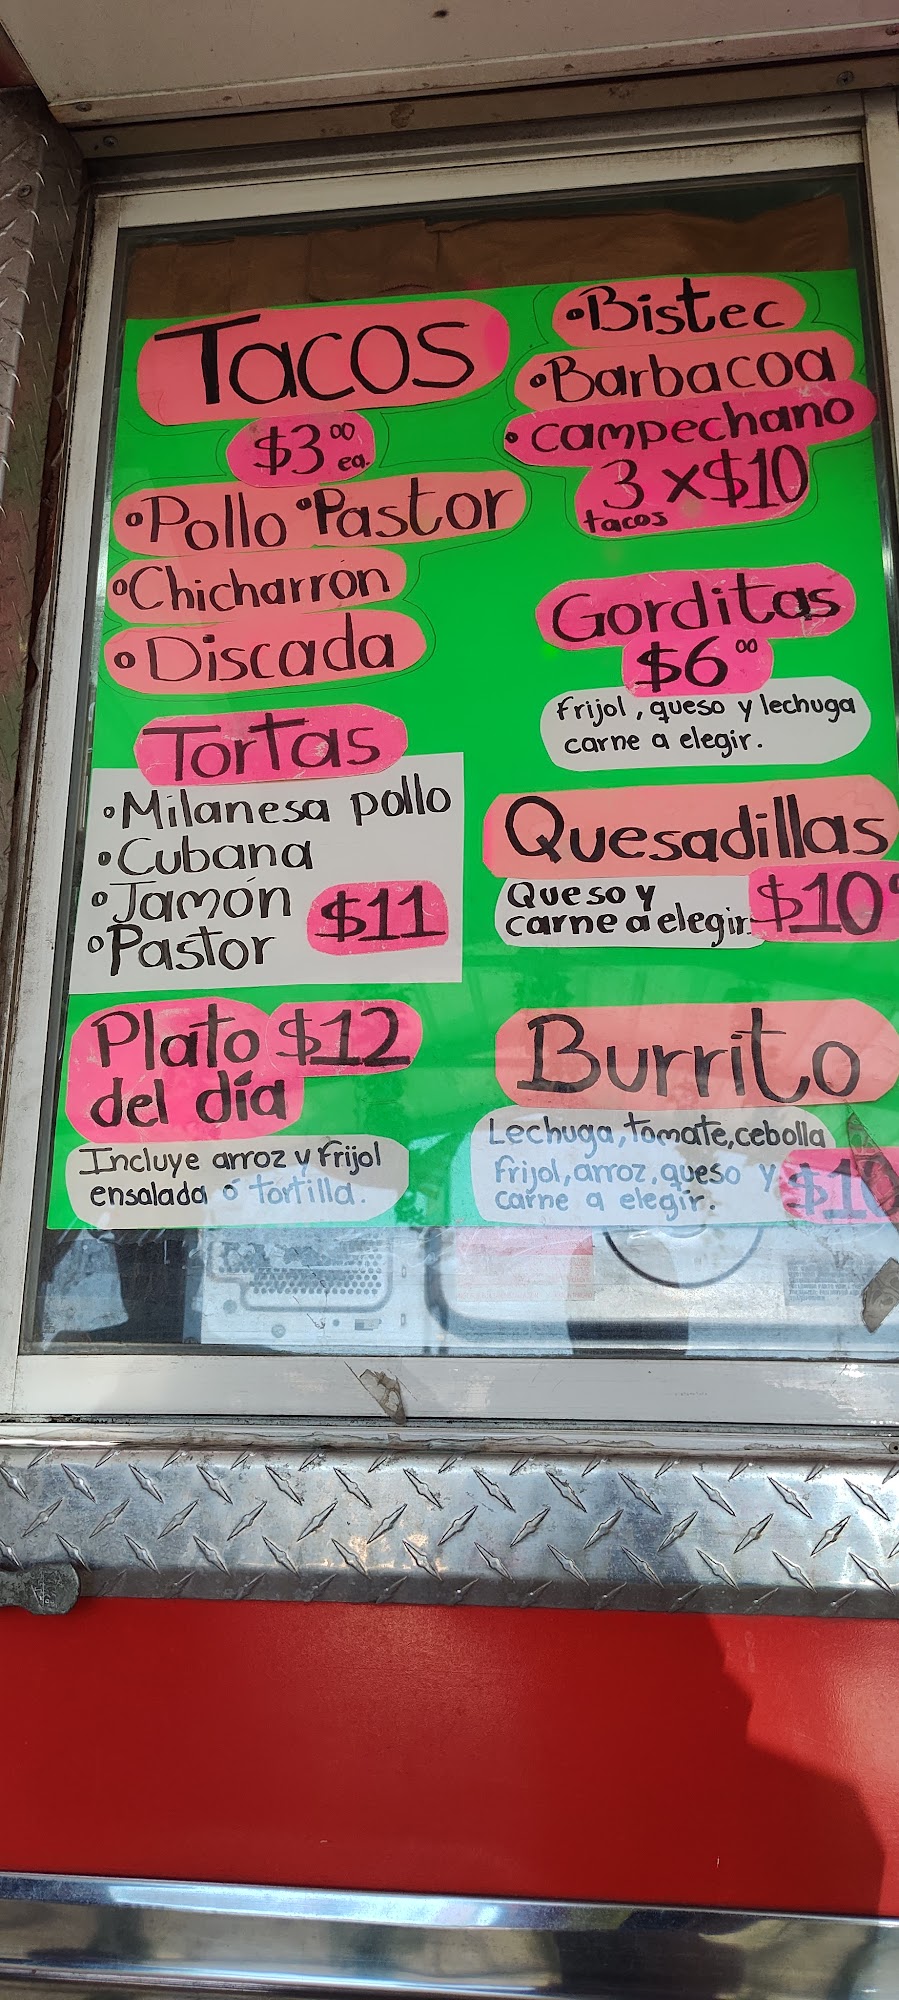 Tacos
$3.00 ea.
•Pollo •Pastor
•Chicharrón
•Discada
•Bistec
•Barbacoa
•Campechano
3 x $10
tacos
Tortas
•Milanesa pollo
•Cubana
•Jamón
•Pastor
$11
Gorditas
$6.00
Frijol, queso y lechuga
carne a elegir.
Quesadillas
Queso y
carne a elegir.
$10
Plato $12
del día
Incluye arroz y frijol
ensalada ó tortilla.
Burrito
Lechuga, tomate, cebolla
frijol, arroz, queso y
carne a elegir.
$10